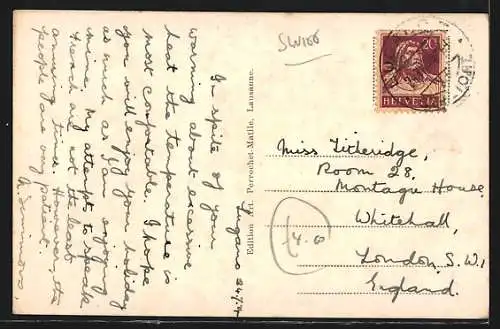 SWISS
Lugano 24/7/
In spite of your
warning about excessive
heat the temperature is
most comfortable. I hope
you will enjoy your holiday
as much as I am enjoying
mine. My attempts to speak
French are not the least
amusing time. However, the
people are very patient.
Edition Art. Perrochet-Matile, Lausanne.
20
HELVETIA
Miss Titheridge,
Room 28,
Montagu House
Whitehall,
London S.W.1
England.
£4.0